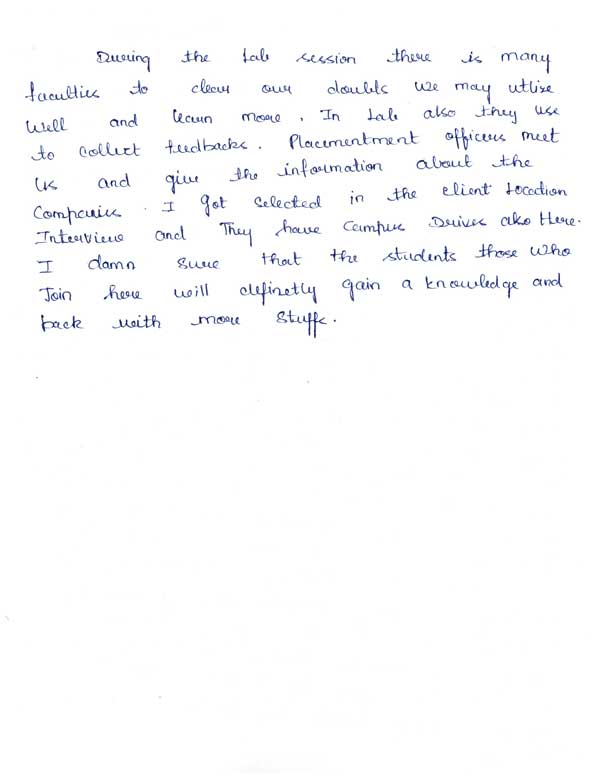 During the Lab session there is many
faculties to clear our doubts we may utlize
Well and learn more. In Lab also they use
to collect feedbacks. Placementment officers meet
us and give the information about the
Companies. I got selected in the client Location
Interview and They have Campus Drives also Here.
I damn sure that the students those who
Join here will definetly gain a knowledge and
back with more stuffs.